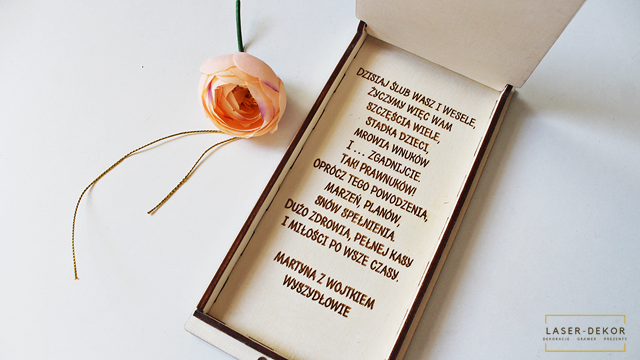 DZISIAJ ŚLUB WASZ I WESELE,
ŻYCZYMY WIĘC WAM
SZCZĘŚCIA WIELE,
STADKA DZIECI,
MROWIA WNUKÓW
I ... ZGADNIJCIE.
TAK! PRAWNUKÓW!
OPRÓCZ TEGO POWODZENIA,
MARZEŃ, PLANÓW,
SNÓW SPEŁNIENIA.
DUŻO ZDROWIA, PEŁNEJ KASY
I MIŁOŚCI PO WSZE CZASY.
MARTYNA Z WOJTKIEM
WYSZYDŁOWIE
LASER-DEKOR
DEKORACJE . GRAWER . PREZENTY